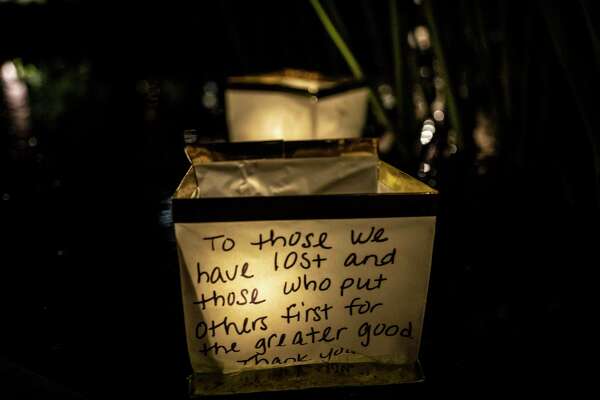 To those we
have lost and
those who put
others first for
the greater good
Thank you